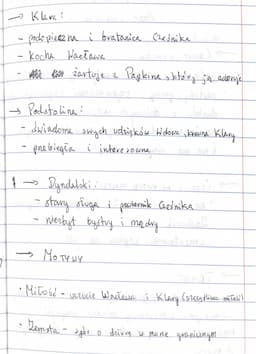 → Klara:
- podopieczna i bratanica Cześnika
- kocha Wacława
- żartuje z Papkina, który ją adoruje
→ Podstolina:
- świadoma swych wdzięków wdowa, krewna Klary
- przebiegła i interesowna
→ Dyndalski:
- stary sługa i powiernik Cześnika
- niezbyt bystry i mądry
→ MOTYWY
• Miłość - uczucie Wacława i Klary (szczęśliwa miłość)
• Zemsta - spór o dziurę w murze granicznym